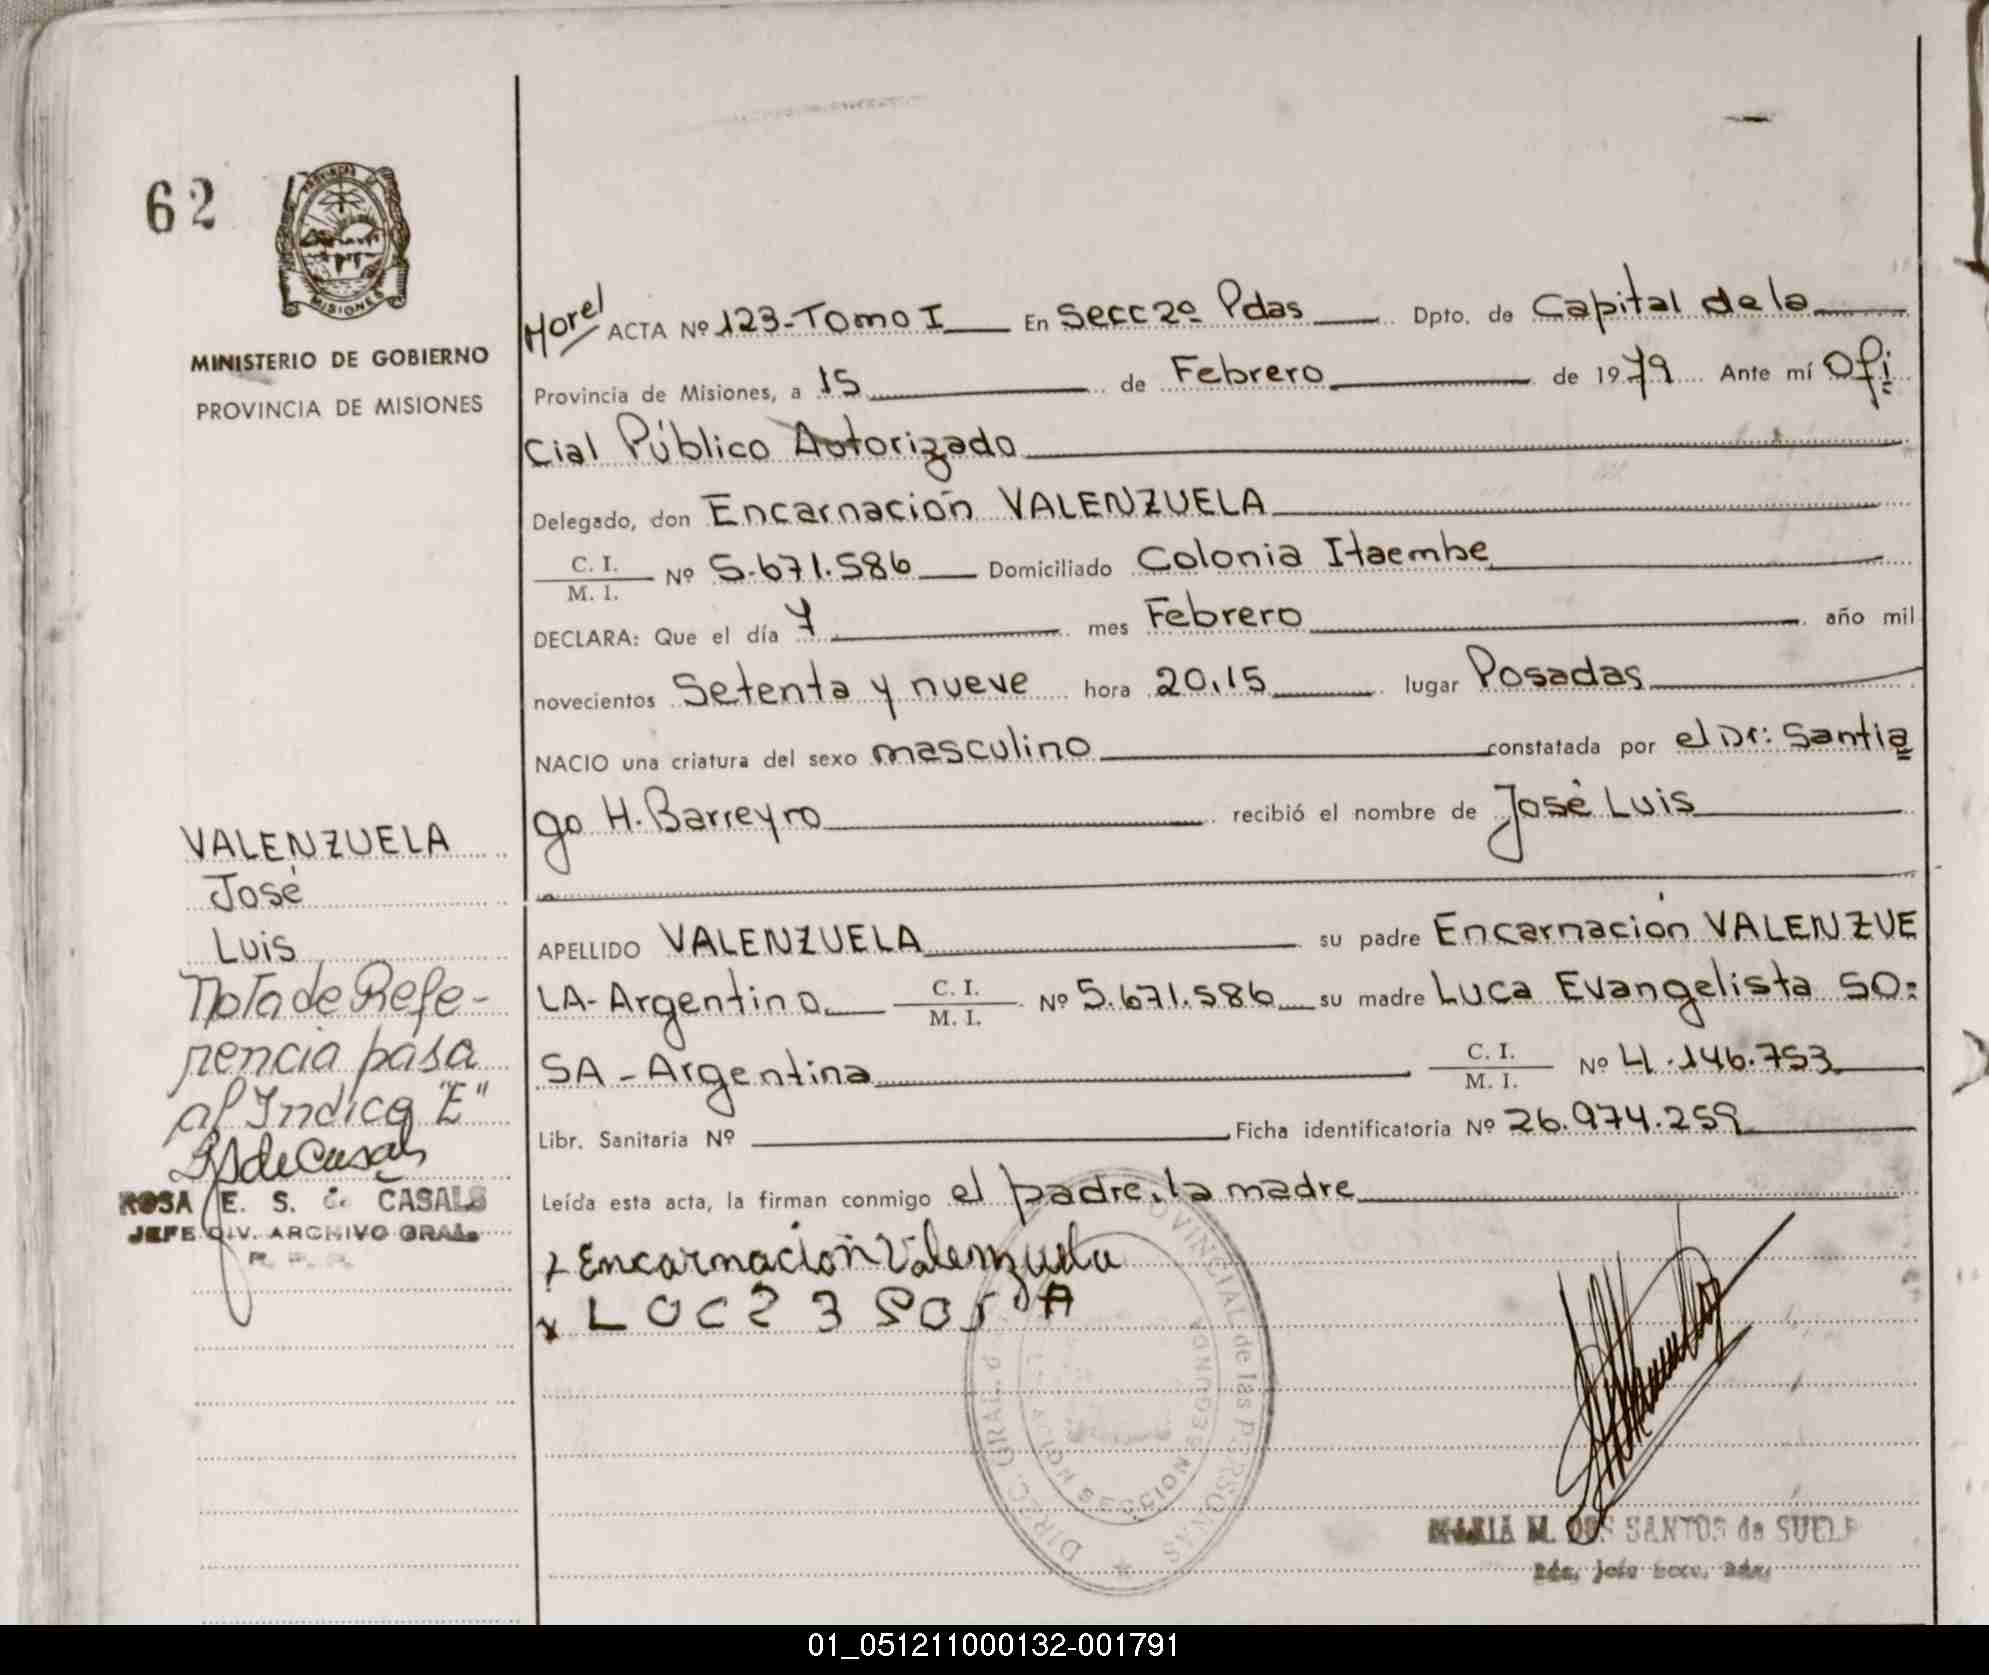 62
MINISTERIO DE GOBIERNO
PROVINCIA DE MISIONES
MISIONES
Morel ACTA Nº 123-Tomo I En Secc 2º Pdas Dpto. de Capital de la
Provincia de Misiones, a 15 de Febrero de 1979 Ante mí Ofi
cial Público Autorizado
Delegado, don Encarnación VALENZUELA
C. I.
M. I. Nº 5.671.586 Domiciliado Colonia Itaembe
DECLARA: Que el día 7 mes Febrero año mil
novecientos Setenta y nueve hora 20,15 lugar Posadas
NACIO una criatura del sexo masculino constatada por el Dr: Santia
go H. Barreyro recibió el nombre de José Luis
APELLIDO VALENZUELA su padre Encarnación VALENZUE
LA-Argentino C. I.
M. I. Nº 5.671.586 su madre Luca Evangelista SO=
SA-Argentina C. I.
M. I. Nº 4.146.753
Libr. Sanitaria Nº Ficha identificatoria Nº 26.974.259
Leída esta acta, la firman conmigo el padre, la madre
VALENZUELA
José
Luis
Nota de Refe-
rencia pasa
al Indice "E"
ROSA E. S. de CASALS
JEFE DIV. ARCHIVO GRAL.
x Encarnación Valenzuela
DIREC. GRAL. PROVINCIAL de las PERSONAS
SECCION SEGUNDA
MARIA M. DOS SANTOS de
01_051211000132-001791